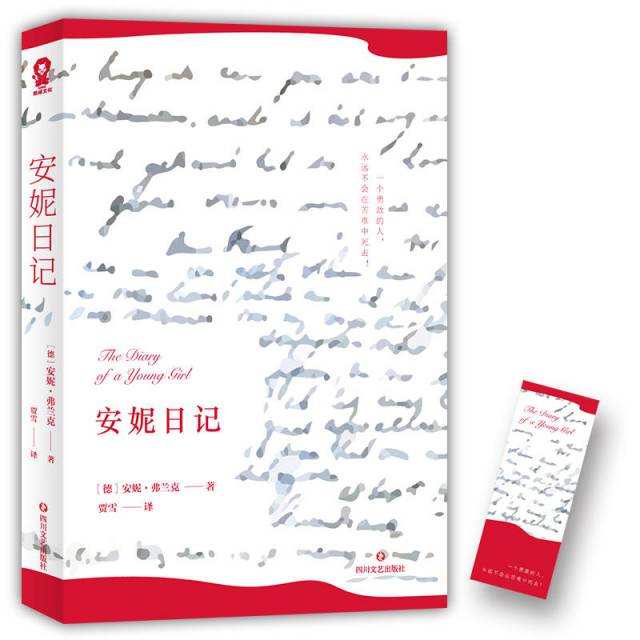 安妮日记
[德]安妮·弗兰克——著
贾雪——译
四川文艺出版社
一个勇敢的人，
永远不会在苦难中死去！
The Diary
of a Young Girl
安妮日记
[德] 安妮·弗兰克——著
贾雪——译
四川文艺出版社
The Diary
of a Young Girl
一个勇敢的人，
永远不会在苦难中死去！